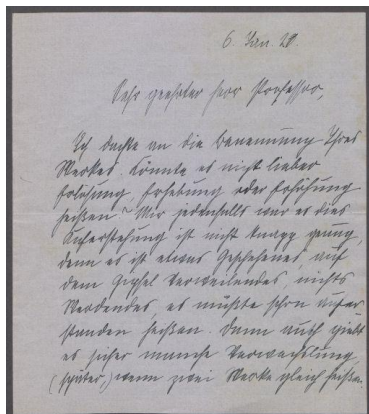 6. Jan. 20.
Sehr geehrter Herr Professor,
Ich dachte an die Benennung Ihres
Werkes. Könnte es nicht lieber
Erlösung, Erhebung oder Erhöhung
heißen? Mir jedenfalls war es dies.
Auferstehung ist nicht knapp genug,
denn es ist etwas Geschehenes, auf
dem Gipfel Verweilendes, nichts
Werdendes, es müßte schon aufer-
standen heißen. Dann auch giebt
es sicher manche Verwechslung,
(später,) wenn zwei Werke gleich heißen.